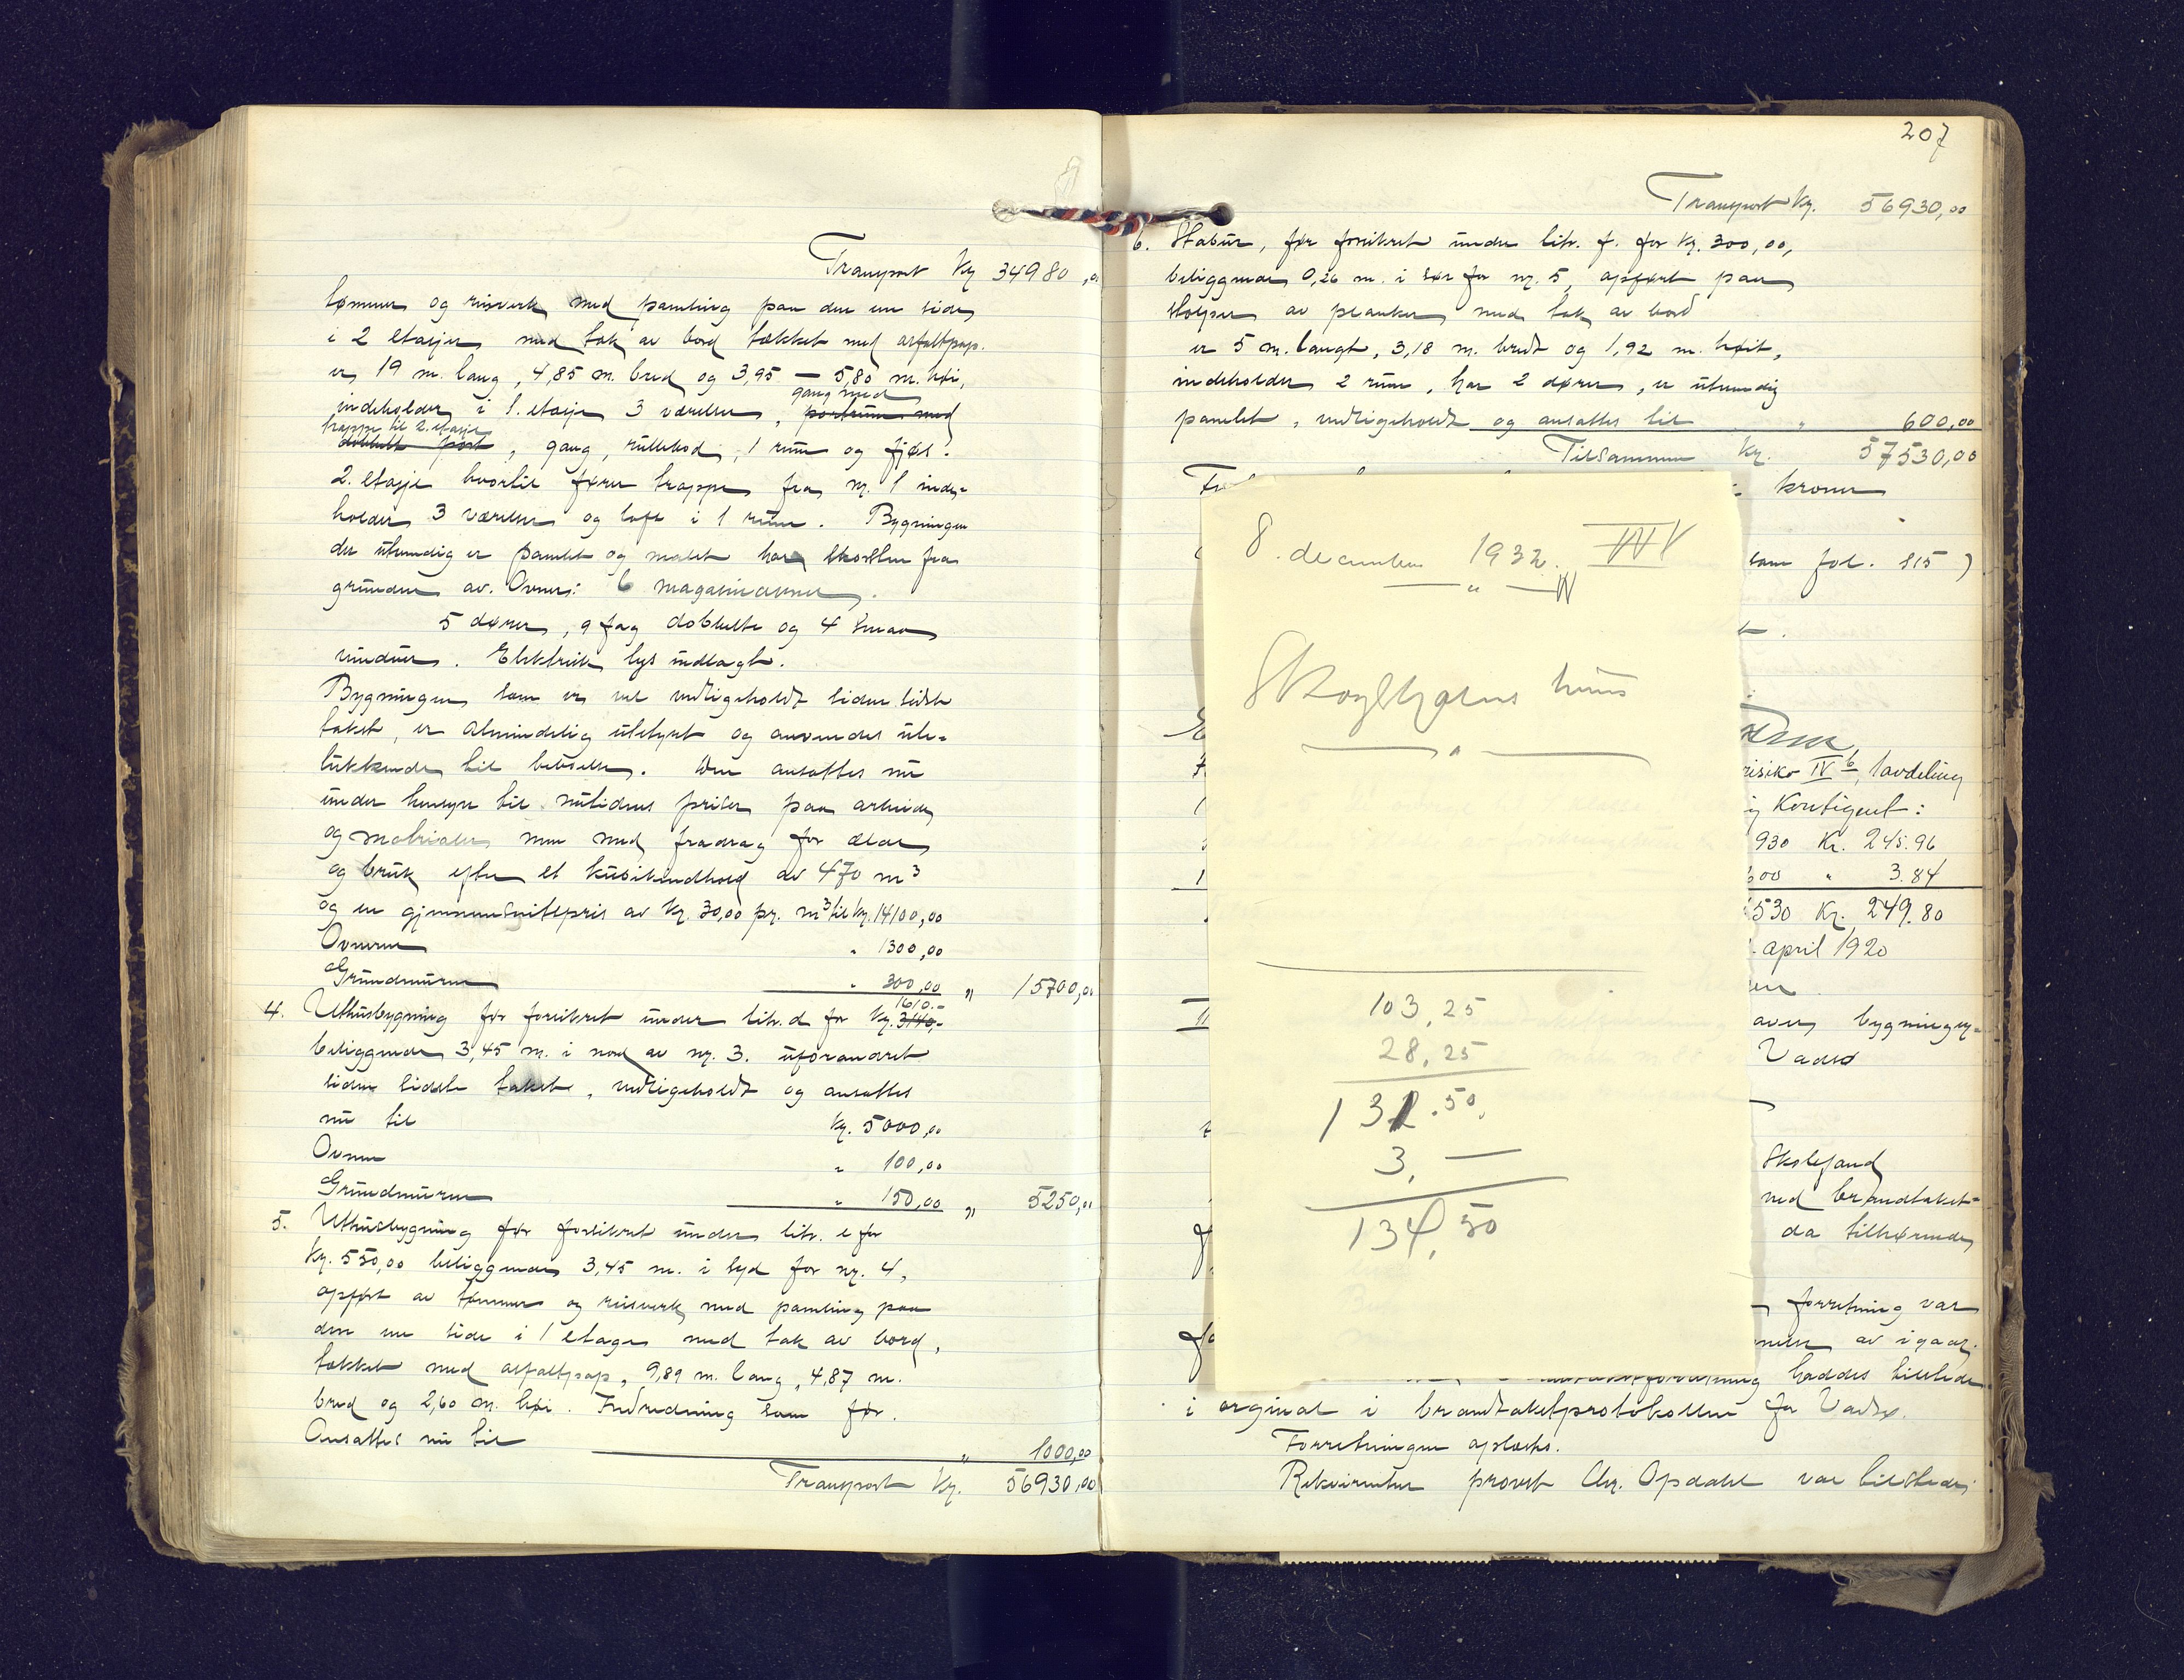 Transport Kr. 34980,00
tømmer og reisverk med panling paa den ene side
i 2 etasjer med tak av bord tækket med asfaltpap.
er 19 m. lang, 4,85 m. bred og 3,95 — 5,80 m. høi,
gang med
indeholder i 1. etasje 3 værelser, portrum med
trappe til 2. etasje
dobbelt port, gang, rullebod, 1 rum og fjøs.
2. etasje hvortil fører trappe fra nr. 1 inde-
holder 3 værelser og loft i 1 rum. Bygningen
der utvendig er panelt og malet har skorsten fra
grunden av. Ovner: 6 magasinovner.
5 dører, 9 fag dobbelte og 4 smaa
vinduer. Elektrisk lys indlagt.
Bygningen som er vel vedligeholdt siden sidste
takst, er almindelig utstyret og anvendes ute-
lukkende til beboelse. Den ansættes nu
under hensyn til nutidens priser paa arbeide
og materialer men med fradrag for ælde
og bruk efter et kubikindhold av 470 m3
og en gjennemsnitspris av kr. 30,00 pr. m3 til kr. 14100,00
Ovnerne " 1300,00
Grundmuren " 300,00 " 15700,00
1610.-
4. Uthusbygning før forsikret under litr. d for kr. 3140,-
beliggende 3,45 m. i nord av nr. 3. uforandret
siden sidste takst, vedligeholdt og ansættes
nu til kr. 5000,00
Ovnen " 100,00
Grundmuren " 150,00 " 5250,00
5. Uthusbygning før forsikret under litr. e for
kr. 550,00 beliggende 3,45 m. i syd for nr. 4,
opført av tømmer og reisverk med panling paa
den ene side i 1 etage med tak av bord,
tækket med asfaltpap, 9,89 m. lang, 4,87 m.
bred og 2,60 m. høi. Indredning som før.
Ansættes nu til " 1000,00
Transport Kr. 56930,00
207
Transport Kr. 56930,00
6. Stabur, før forsikret under litr. f. for kr. 300,00,
beliggende 0,26 m. i sør for nr. 5, opført paa
stolper av planker med tak av bord
er 5 m. langt, 3,18 m. bredt og 1,92 m. høit,
indeholder 2 rum, har 2 dører, er utvendig
panelt, vedligeholdt og ansættes til " 600,00
Tilsammen Kr. 57530,00
kroner
8. december 1932. IV
— " — IV
som fol. 815)
Skogbjørns hus
risiko IV b, 1 avdeling
Kontigent:
930 Kr. 245.96
600 " 3.84
530 Kr. 249.80
april 1920
103,25
28,25
131.50
3, —
134,50
bygnings-
Vadsø
Skolefond
ved brandtakst-
da tilhørende
forretning var
av igaar.
haddes tilstede
i orginal i brandtakstprotokollen for Vadsø.
Forretningen oplæstes.
Rekvirenten provst Chr. Opdahl var tilstede